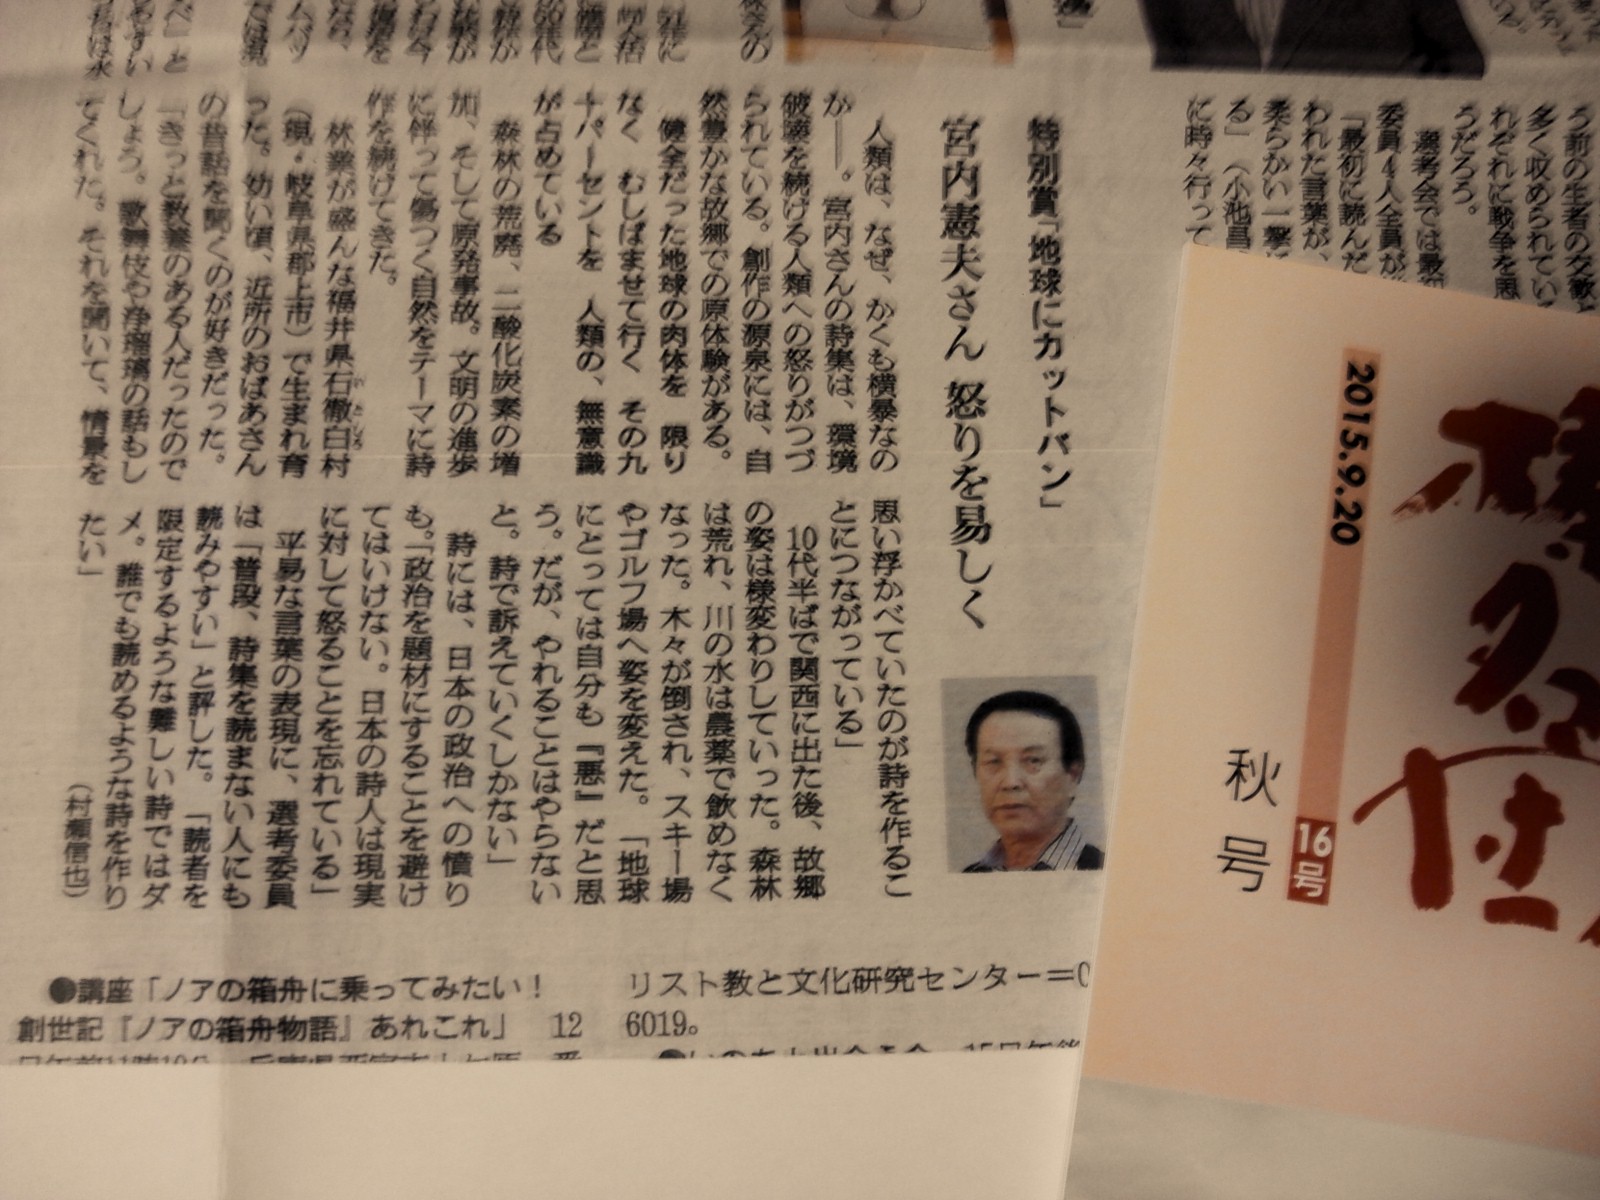 特別賞「地球にカットバン」
宮内憲夫さん 怒りを易しく
人類は、なぜ、かくも横暴なの
か――。宮内さんの詩集は、環境
破壊を続ける人類への怒りがつづ
られている。創作の源泉には、自
然豊かな故郷での原体験がある。
健全だった地球の肉体を 限り
なく むしばませて行く その九
十パーセントを 人類の、無意識
が占めている
森林の荒廃、二酸化炭素の増
加、そして原発事故。文明の進歩
に伴って傷つく自然をテーマに詩
作を続けてきた。
林業が盛んな福井県石徹白村
(現・岐阜県郡上市)で生まれ育
った。幼い頃、近所のおばあさん
の昔話を聞くのが好きだった。
「きっと教養のある人だったので
しょう。歌舞伎や浄瑠璃の話もし
てくれた。それを聞いて、情景を
思い浮かべていたのが詩を作るこ
とにつながっている」
10代半ばで関西に出た後、故郷
の姿は様変わりしていった。森林
は荒れ、川の水は農薬で飲めなく
なった。木々が倒され、スキー場
やゴルフ場へ姿を変えた。「地球
にとっては自分も『悪』だと思
う。だが、やれることはやらない
と。詩で訴えていくしかない」
詩には、日本の政治への憤り
も。「政治を題材にすることを避け
てはいけない。日本の詩人は現実
に対して怒ることを忘れている」
平易な言葉の表現に、選考委員
は「普段、詩集を読まない人にも
読みやすい」と評した。「読者を
限定するような難しい詩ではダ
メ。誰でも読めるような詩を作り
たい」
(村瀬信也)
う前の生者の交歓と
多く収められてい
れぞれに戦争を思
うだろう。
選考会では最初
委員4人全員が
「最初に読んだ
われた言葉が、
柔らかい一撃に
る」(小池昌
に時々行って
●講座「ノアの箱舟に乗ってみたい!
創世記『ノアの箱舟物語』あれこれ」 12
リスト教と文化研究センター=0
6019。
2015.9.20
16号
秋号